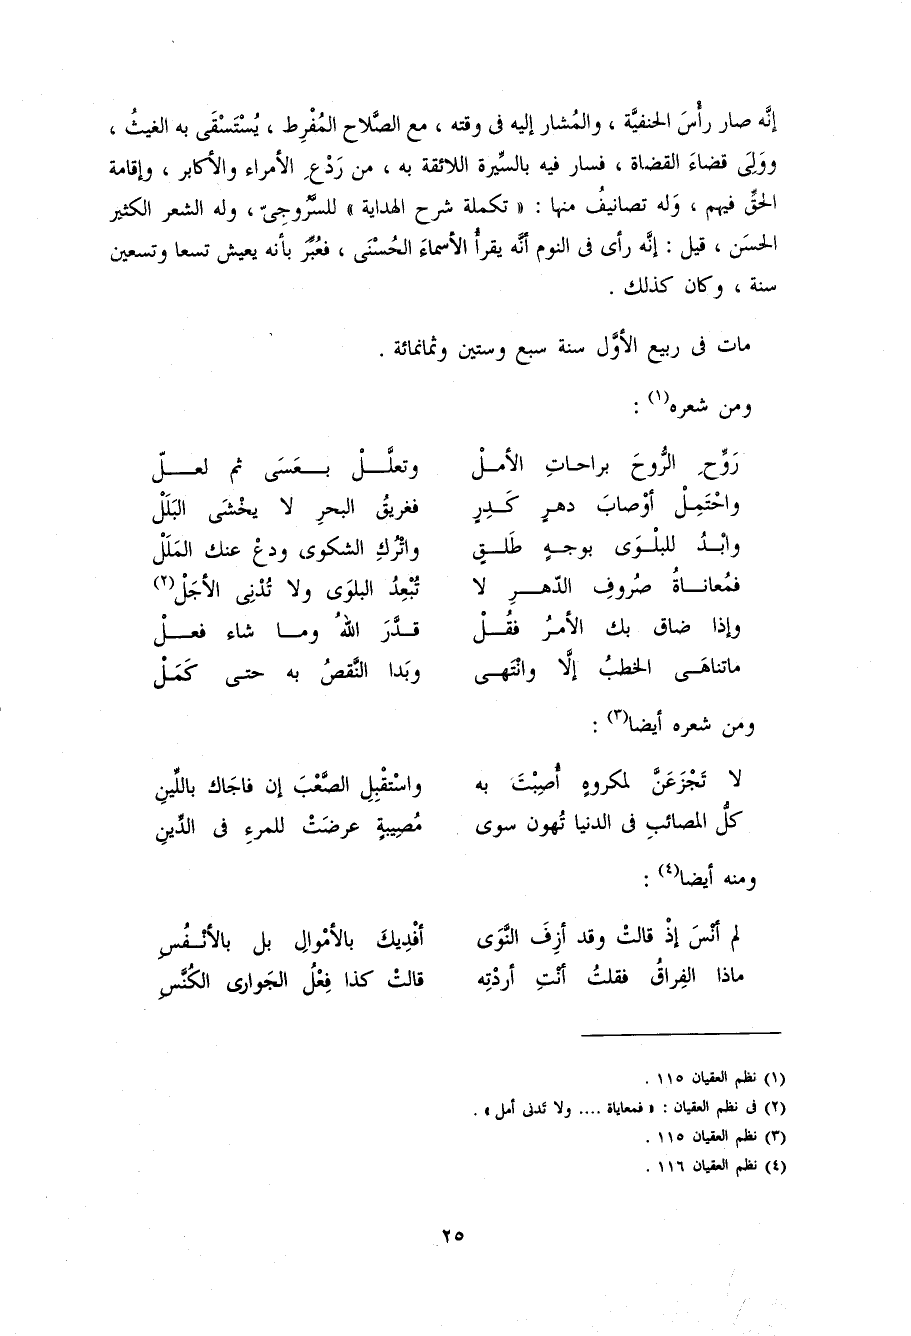 إنَّه صار رأْسَ الحنفيَّة ، والمُشار إليه فى وقته ، مع الصَّلاح المُفْرِط ، يُسْتَسْقَى به الغيثُ ،
ووَلِىَ قضاءَ القضاة ، فسار فيه بالسِّيرة اللائقة به ، من رَدْعِ الأمراء والأكابر ، وإقامة
الحقِّ فيهم ، وَله تصانيفُ منها : « تكملة شرح الهداية » للسَّروجىّ ، وله الشعر الكثير
الحسَن ، قيل : إنَّه رأى فى النوم أنَّه يقرأُ الأسماءَ الحُسْنَى ، فعُبِّرَ بأنه يعيش تسعا وتسعين
سنة ، وكان كذلك .
مات فى ربيع الأوَّل سنة سبع وستين وثمانمائة .
ومن شعره(١) :
رَوِّحِ الرُّوحَ براحاتِ الأملْ وتعلَّلْ بعَسَى ثم لعلّ
واحْتَمِلْ أوْصابَ دهرٍ كَدِرٍ فغريقُ البحرِ لا يخْشَى البَلَلْ
وابْدُ للبلْوَى بوجهٍ طَلقٍ واتْرُكِ الشكوى ودعْ عنك المَلَلْ
فمُعاناةُ صُروفِ الدّهرِ لا تُبْعِدُ البلوَى ولا تُدْنِى الأجَلْ(٢)
وإذا ضاق بك الأمرُ فقُلْ قدَّرَ اللهُ وما شاء فعلْ
ماتناهَى الخطبُ إلَّا وانْتَهى وبَدا النَّقصُ به حتى كَمَلْ
ومن شعره أيضا(٣) :
لا تَجْزَعَنَّ لمكروهٍ أُصِبْتَ به واسْتقْبِلِ الصَّعْبَ إن فاجَاك باللِّينِ
كلُّ المصائبِ فى الدنيا تُهون سوى مُصِيبةٍ عرضَتْ للمرءِ فى الدِّينِ
ومنه أيضا(٤) :
لم أنْسَ إذْ قالتْ وقد أزِفَ النَّوَى أفْدِيكَ بالأمْوالِ بل بالأنْفُسِ
ماذا الفِراقُ فقلتُ أنْتِ أردْتِه قالتْ كذا فِعْلُ الجوارى الكُنَّسِ
(١) نظم العقيان ١١٥ .
(٢) فى نظم العقيان : « فمعاياة .... ولا تدنى أمل » .
(٣) نظم العقيان ١١٥ .
(٤) نظم العقيان ١١٦ .
٢٥